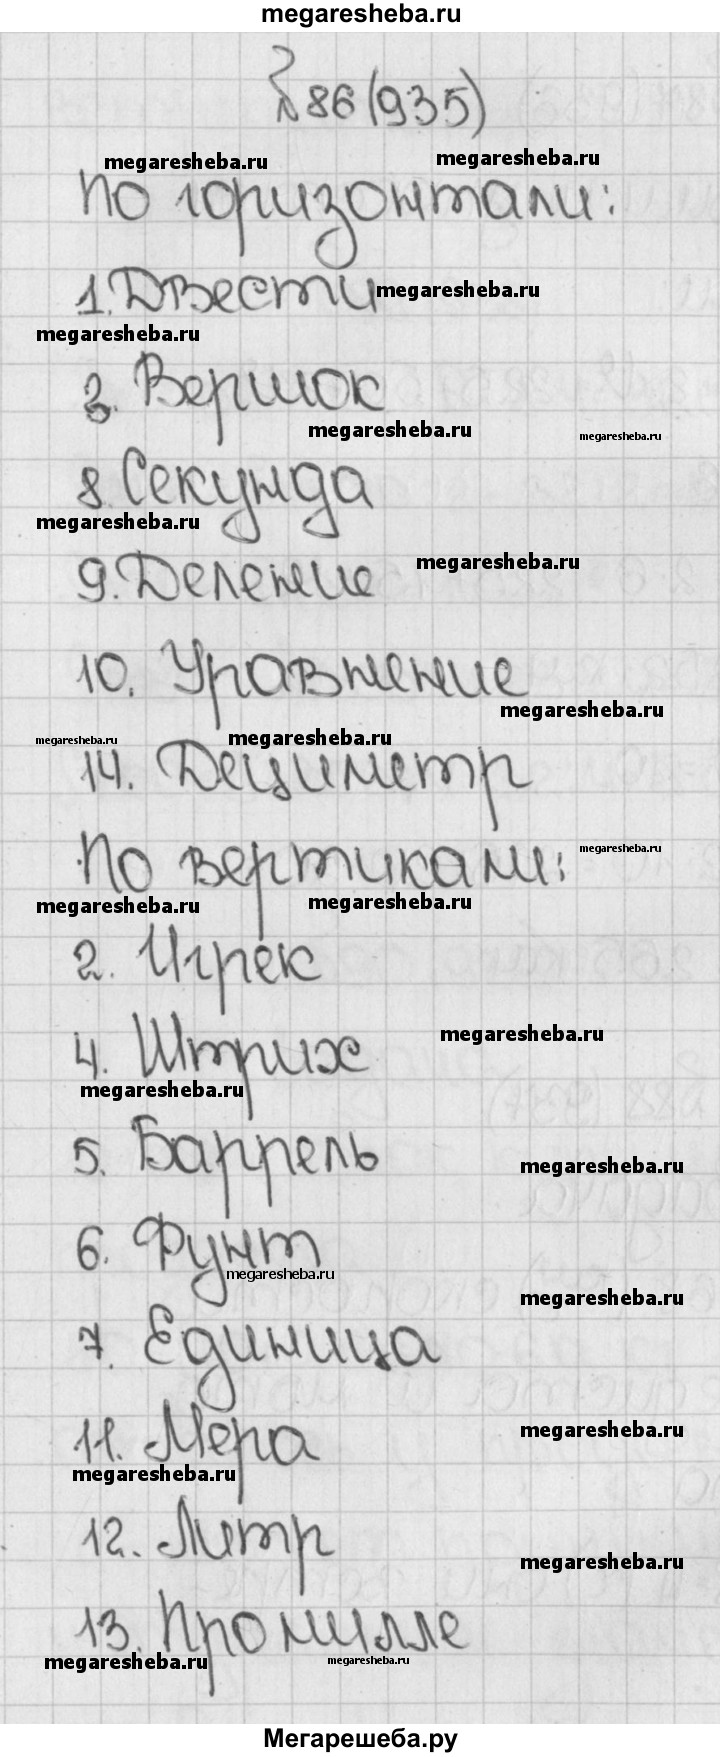 megaresheba.ru
№86 (935)
megaresheba.ru
megaresheba.ru
По горизонтали:
1. Двести
megaresheba.ru
megaresheba.ru
3. Вершок
megaresheba.ru
megaresheba.ru
8. Секунда
megaresheba.ru
9. Деление
megaresheba.ru
10. Уравнение
megaresheba.ru
megaresheba.ru
megaresheba.ru
14. Дециметр
По вертикали:
megaresheba.ru
megaresheba.ru
megaresheba.ru
2. Игрек
4. Штрих
megaresheba.ru
megaresheba.ru
5. Баррель
megaresheba.ru
6. Фунт
megaresheba.ru
megaresheba.ru
7. Единица
11. Мера
megaresheba.ru
megaresheba.ru
12. Литр
megaresheba.ru
13. Промилле
megaresheba.ru
megaresheba.ru
Мегарешеба.ру